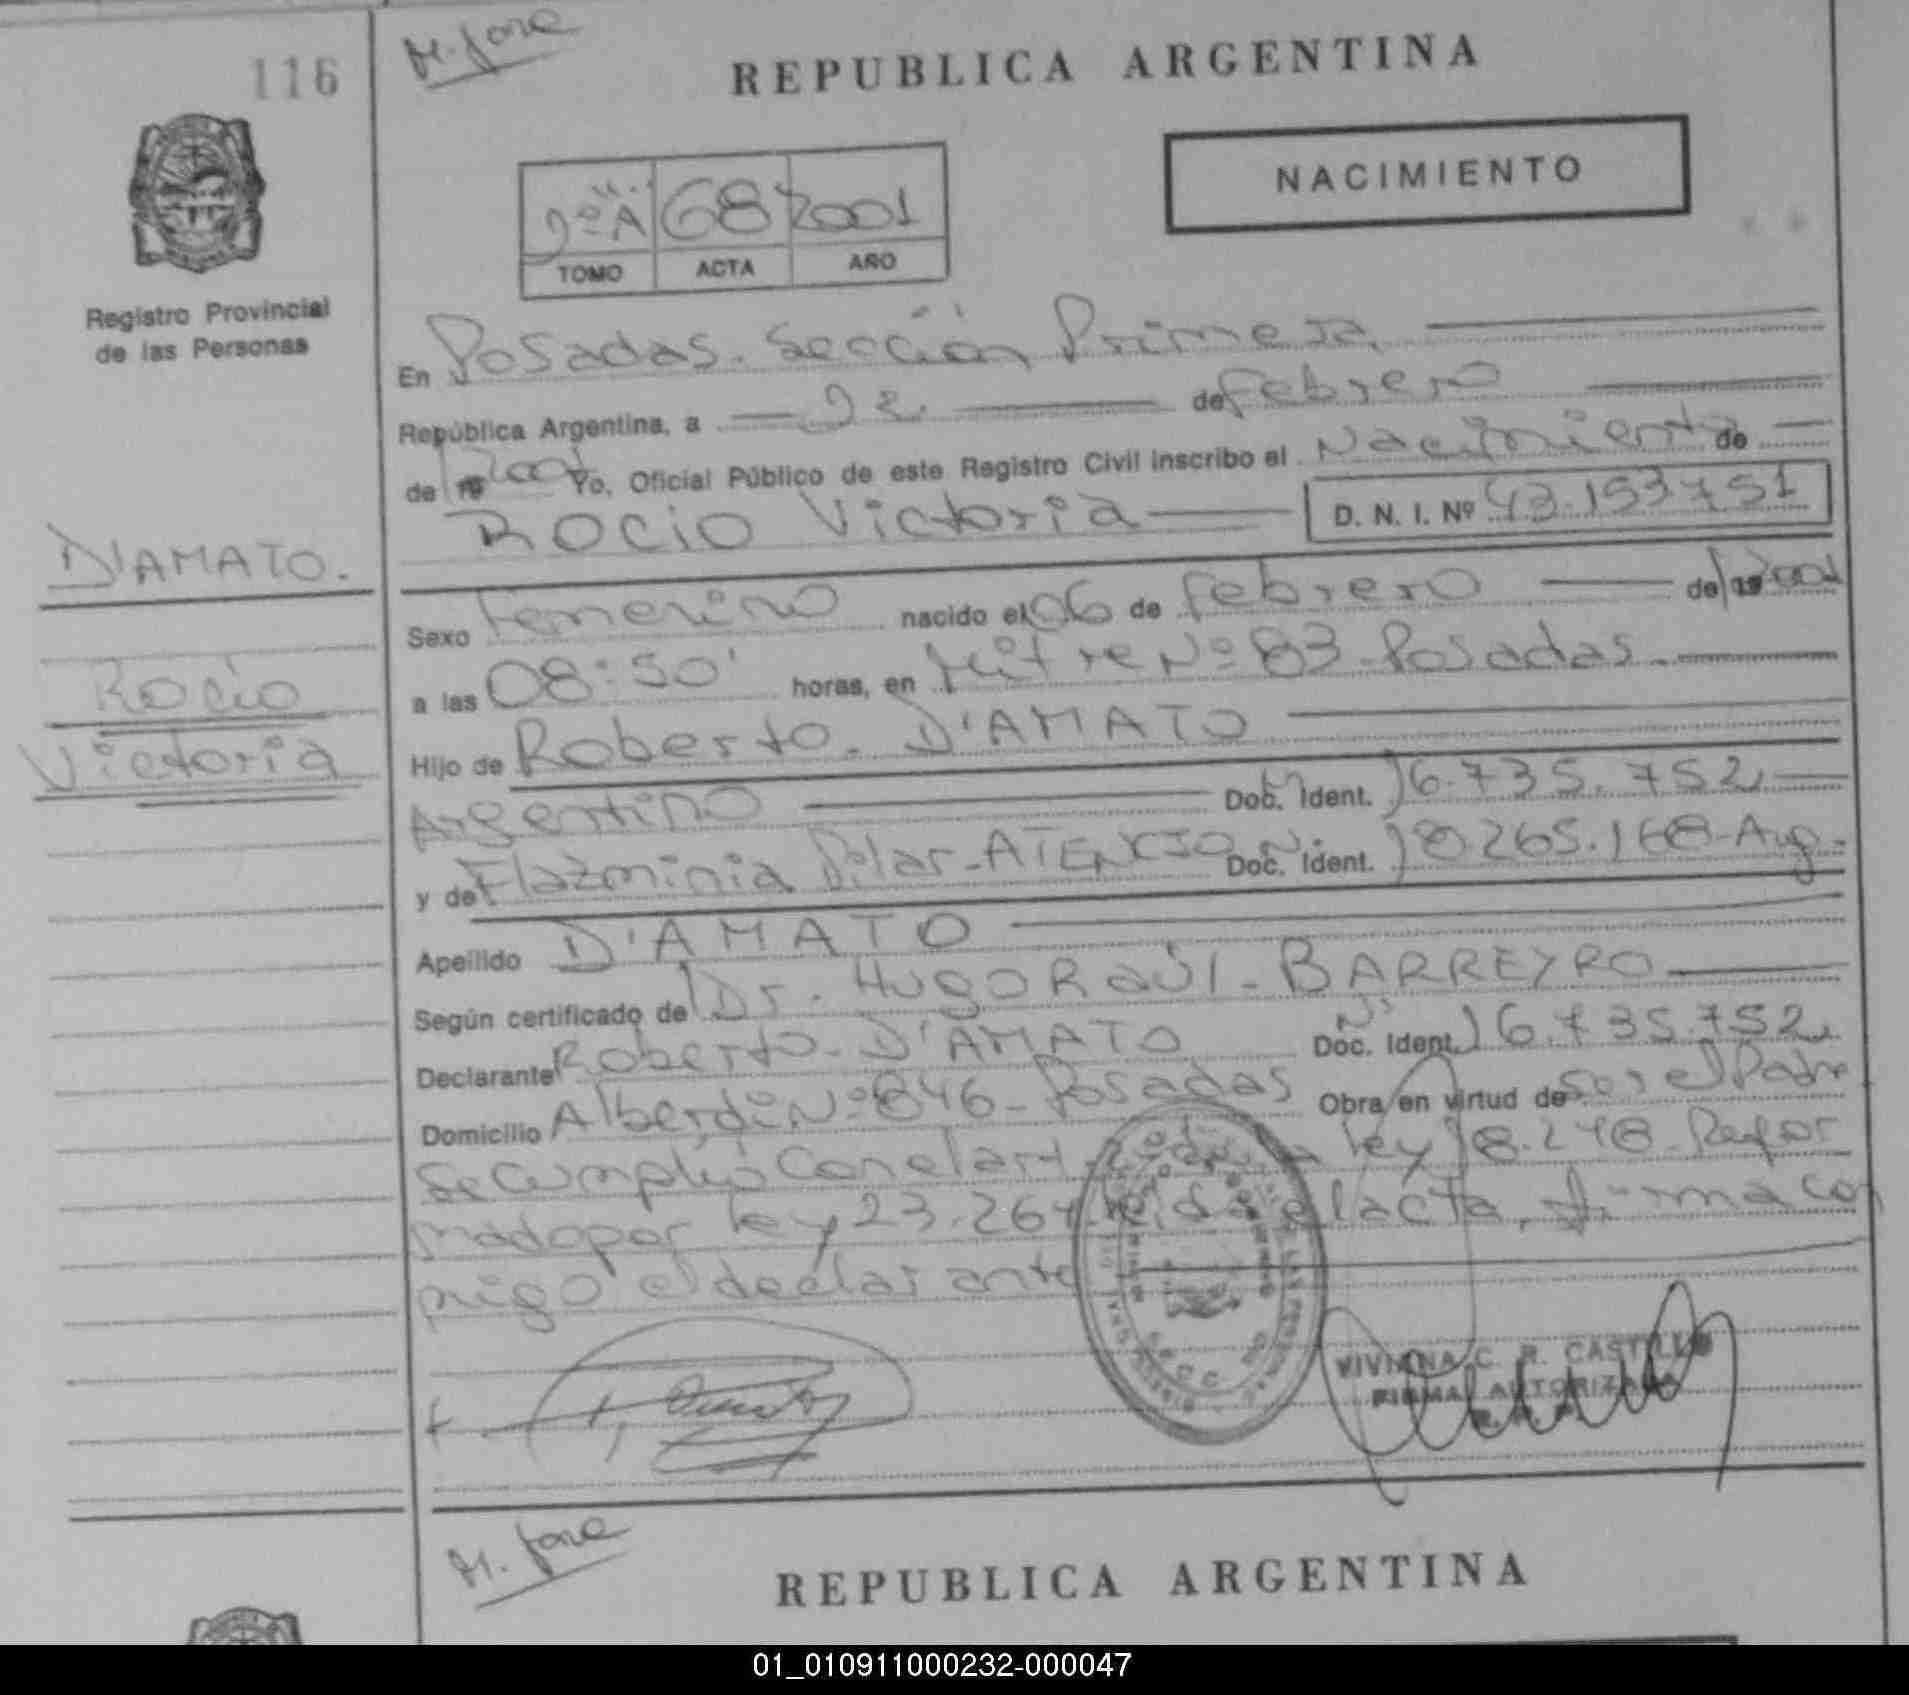 116
M. José
REPUBLICA ARGENTINA
NACIMIENTO
A 68 2001
TOMO ACTA AÑO
Registro Provincial
de las Personas
En Posadas. Sección Primera
República Argentina, a de Febrero
de 2001 Yo, Oficial Público de este Registro Civil inscribo el Nacimiento de
ROCIO Victoria D. N. I. Nº 43.153.751
D'AMATO.
Rocio
Victoria
Sexo Femenino nacido el 06 de Febrero de 2001
a las 08:50' horas, en Mitre Nº 83-Posadas
Hijo de Roberto. D'AMATO
Argentino Doc. Ident. 16.735.752
y de Flazminia Pilar-ATENCIO Doc. Ident. 18.265.168-Arg.
Apellido D'AMATO
Según certificado de Dr. HUGO RAUL-BARREYRO
Declarante Roberto-D'AMATO Doc. Ident. 16.735.752
Domicilio Alberdi Nº 846-Posadas Obra en virtud de ser el Padre
Se Cumplió Con el art. ley 18.248-Refor
mado por ley 23.264 el acta, firma con
migo el declarante
VIVIANA C. R. CASTILLO
FIRMA AUTORIZADA
M. José
REPUBLICA ARGENTINA
01_010911000232-000047